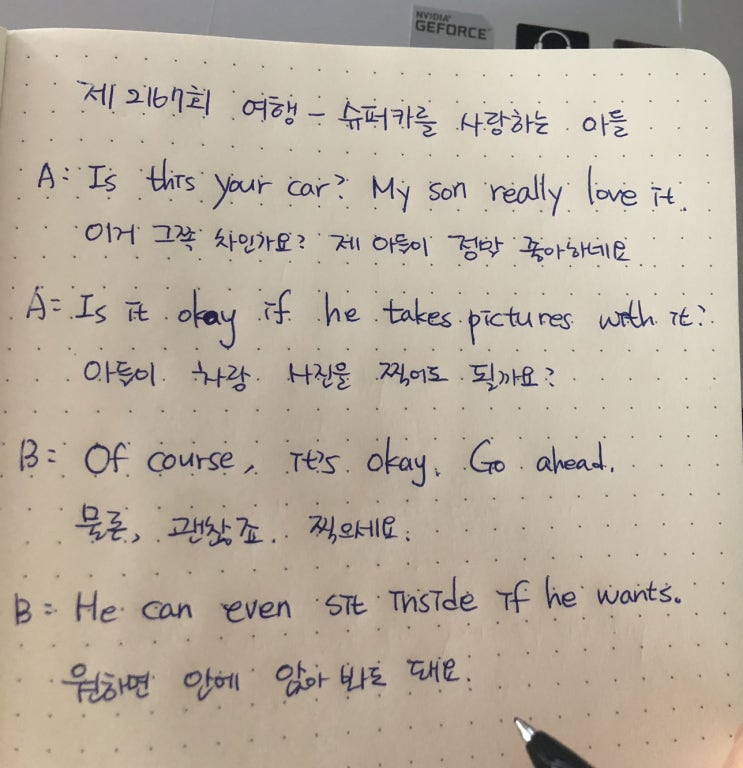 NVIDIA
GEFORCE
제 2167회 여행 - 슈퍼카를 사랑하는 아들
A: Is this your car? My son really love it.
이거 그쪽 차인가요? 제 아들이 정말 좋아하네요
A: Is it okay if he takes pictures with it?
아들이 차랑 사진을 찍어도 될까요?
B: Of course, it's okay. Go ahead.
물론, 괜찮죠. 찍으세요.
B: He can even sit inside if he wants.
원하면 안에 앉아 봐도 돼요.